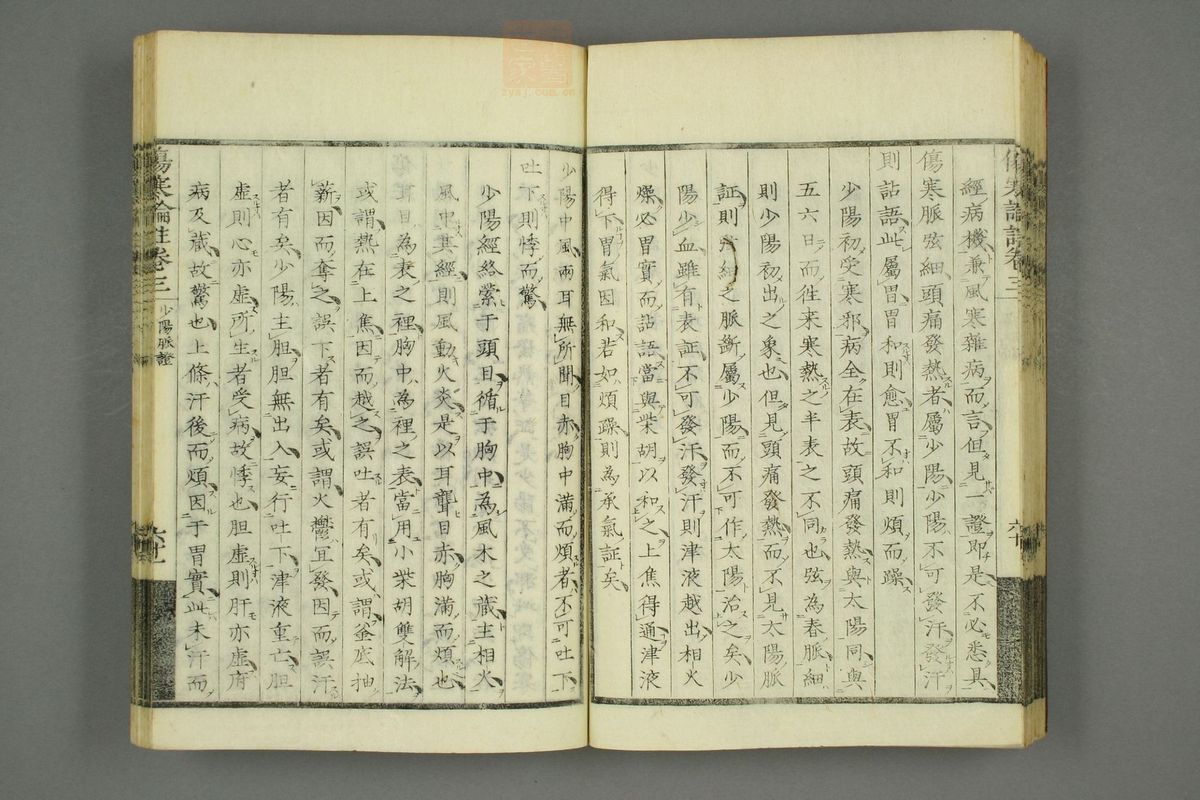 經病機兼風寒雜病而言但見一證即是不必悉具
傷寒脈弦細頭痛發熱者屬少陽少陽不可發汗發汗
則詀語此屬胃胃和則愈胃不和則煩而躁
少陽初受寒邪病全在表故頭痛發熱與太陽同與
五六日而往来寒熱之半表之不同也弦為春脈細
則少陽初出之象也但見頭痛發熱而不見太陽脈
証則弦細之脈斷屬少陽而不可作太陽治之矣少
陽少血雖有表証不可發汗發汗則津液越出相火
燥必胃實而詀語當與柴胡以和之上焦得通津液
得下胃氣因和若加煩躁則為承氣証矣
少陽中風兩耳無所聞目赤胸中滿而煩者不可吐下
吐下則悸而驚
少陽經絡縈于頭目循于胸中為風木之藏主相火
風中其經則風動火炎是以耳聾目赤胸滿而煩也
耳目為表之裡胸中為裡之表當用小柴胡雙解法
或謂熱在上焦因而越之誤吐者有矣或謂釜底抽
薪因而奪之誤下者有矣或謂火鬱宜發因而誤汗
者有矣少陽主胆胆無出入妄行吐下津液重亡胆
虛則心亦虛所生者受病故悸也胆虛則肝亦虛府
病及藏故驚也上條汗後而煩因于胃實此未汗而
傷寒論註卷三
少陽脈證
六十一